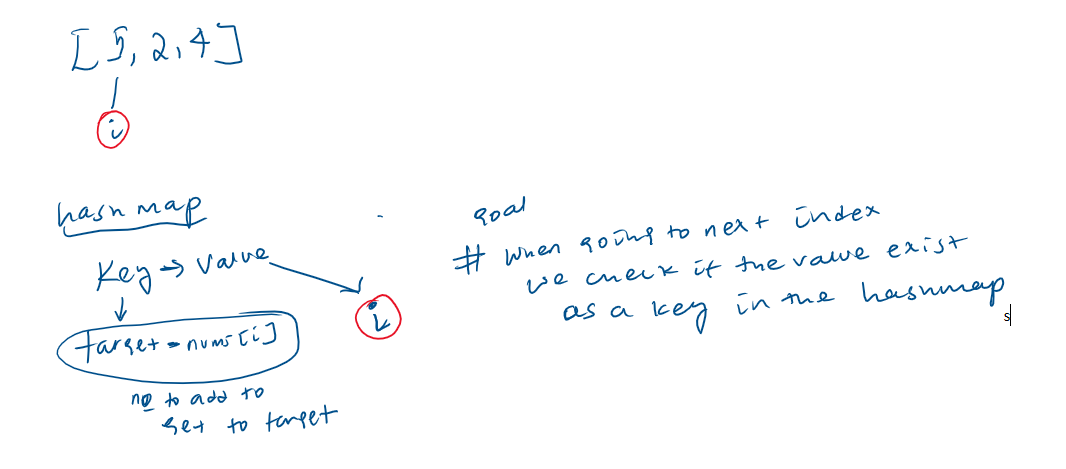 [5, 2, 4]
i
hash map
Key → Value
i
target - nums[i]
no to add to
get to target
goal
# when going to next index
we check if the value exist
as a key in the hashmap
s